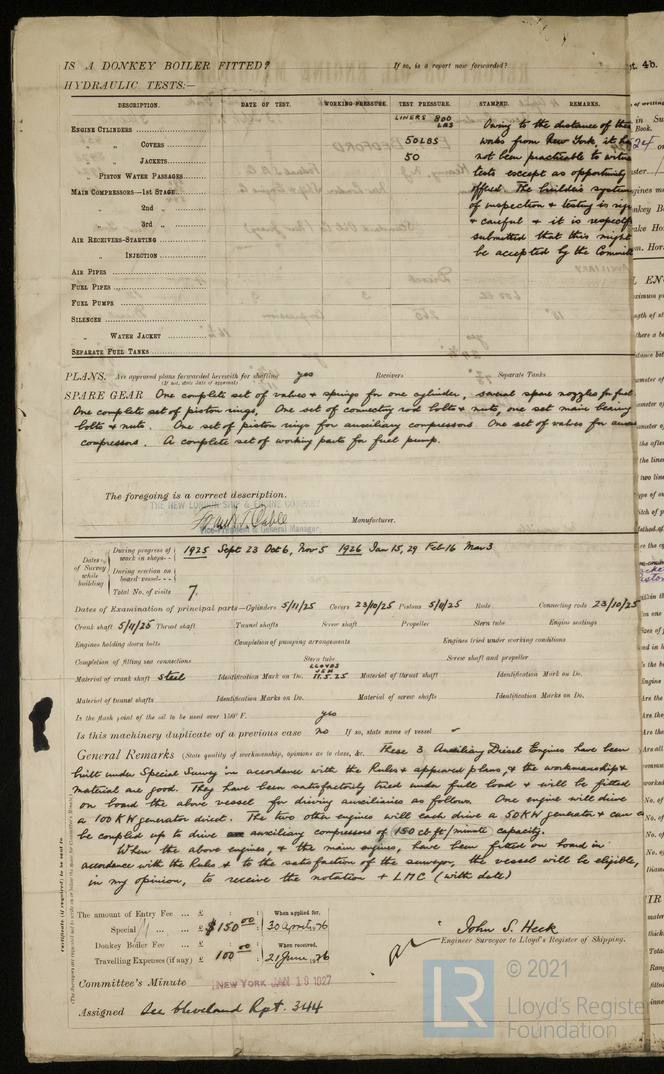 IS A DONKEY BOILER FITTED? If so, is a report now forwarded?
HYDRAULIC TESTS:—
DESCRIPTION. DATE OF TEST. WORKING PRESSURE. TEST PRESSURE. STAMPED. REMARKS.
ENGINE CYLINDERS LINERS 800 LBS
" COVERS 50 LBS
" JACKETS 50
" PISTON WATER PASSAGES
MAIN COMPRESSORS—1ST STAGE
" 2nd "
" 3rd "
AIR RECEIVERS-STARTING
" INJECTION
AIR PIPES
FUEL PIPES
FUEL PUMPS
SILENCER
" WATER JACKET
SEPARATE FUEL TANKS
Owing to the distance of the
works from New York, it ha
not been practicable to witne
tests except as opportunity
offered. The builder's system
of inspection & testing is rig
& careful & it is respectf
submitted that this might
be accepted by the Committ
PLANS. Are approved plans forwarded herewith for shafting yes Receivers Separate Tanks
(If not, state date of approval)
SPARE GEAR One complete set of valves & springs for one cylinder, several spare nozzles for fuel
One complete set of piston rings, One set of connecting rod bolts & nuts, one set main bearing
bolts & nuts. One set of piston rings for auxiliary compressors One set of valves for
compressors. A complete set of working parts for fuel pump.
The foregoing is a correct description.
THE NEW LONDON SHIP & ENGINE COMPANY
Manufacturer.
Vice-President & General Manager.
Dates of Survey while building
During progress of work in shops 1925 Sept 23 Oct 6, Nov 5 1926 Jan 15, 29 Feb 16 Mar 3
During erection on board vessel
Total No. of visits 7.
Dates of Examination of principal parts—Cylinders 5/11/25 Covers 23/10/25 Pistons 5/11/25 Rods Connecting rods 23/10/25
Crank shaft 5/11/25 Thrust shaft Tunnel shafts Screw shaft Propeller Stern tube Engine seatings
Engines holding down bolts Completion of pumping arrangements Engines tried under working conditions
Completion of fitting sea connections Stern tube Screw shaft and propeller
Material of crank shaft steel Identification Mark on Do. LLOYDS JSH 11.5.25 Material of thrust shaft Identification Mark on Do.
Material of tunnel shafts Identification Marks on Do. Material of screw shafts Identification Marks on Do.
Is the flash point of the oil to be used over 150° F. yes
Is this machinery duplicate of a previous case no If so, state name of vessel
General Remarks (State quality of workmanship, opinions as to class, &c. These 3 Auxiliary Diesel Engines have been
built under Special Survey in accordance with the Rules & approved plans, & the workmanship &
material are good. They have been satisfactorily tried under full load & will be fitted
on board the above vessel for driving auxiliaries as follows. One engine will drive
a 100 KW generator direct. The two other engines will each drive a 50 KW generator & can
be coupled up to drive auxiliary compressors of 150 cb.ft/minute capacity.
When the above engines, & the main engines, have been fitted on board in
accordance with the Rules & to the satisfaction of the surveyor, the vessel will be eligible,
in my opinion, to receive the notation + LMC (with date)
The amount of Entry Fee £ When applied for,
Special £ $150.00 30 April 1926
Donkey Boiler Fee £ When received,
Travelling Expenses (if any) £ 100.00 21 June 1926
John S. Heck
Engineer Surveyor to Lloyd's Register of Shipping.
Committee's Minute NEW YORK JAN 19 1927
Assigned See Cleveland Rpt. 344
© 2021
LR
Lloyd's Register
Foundation